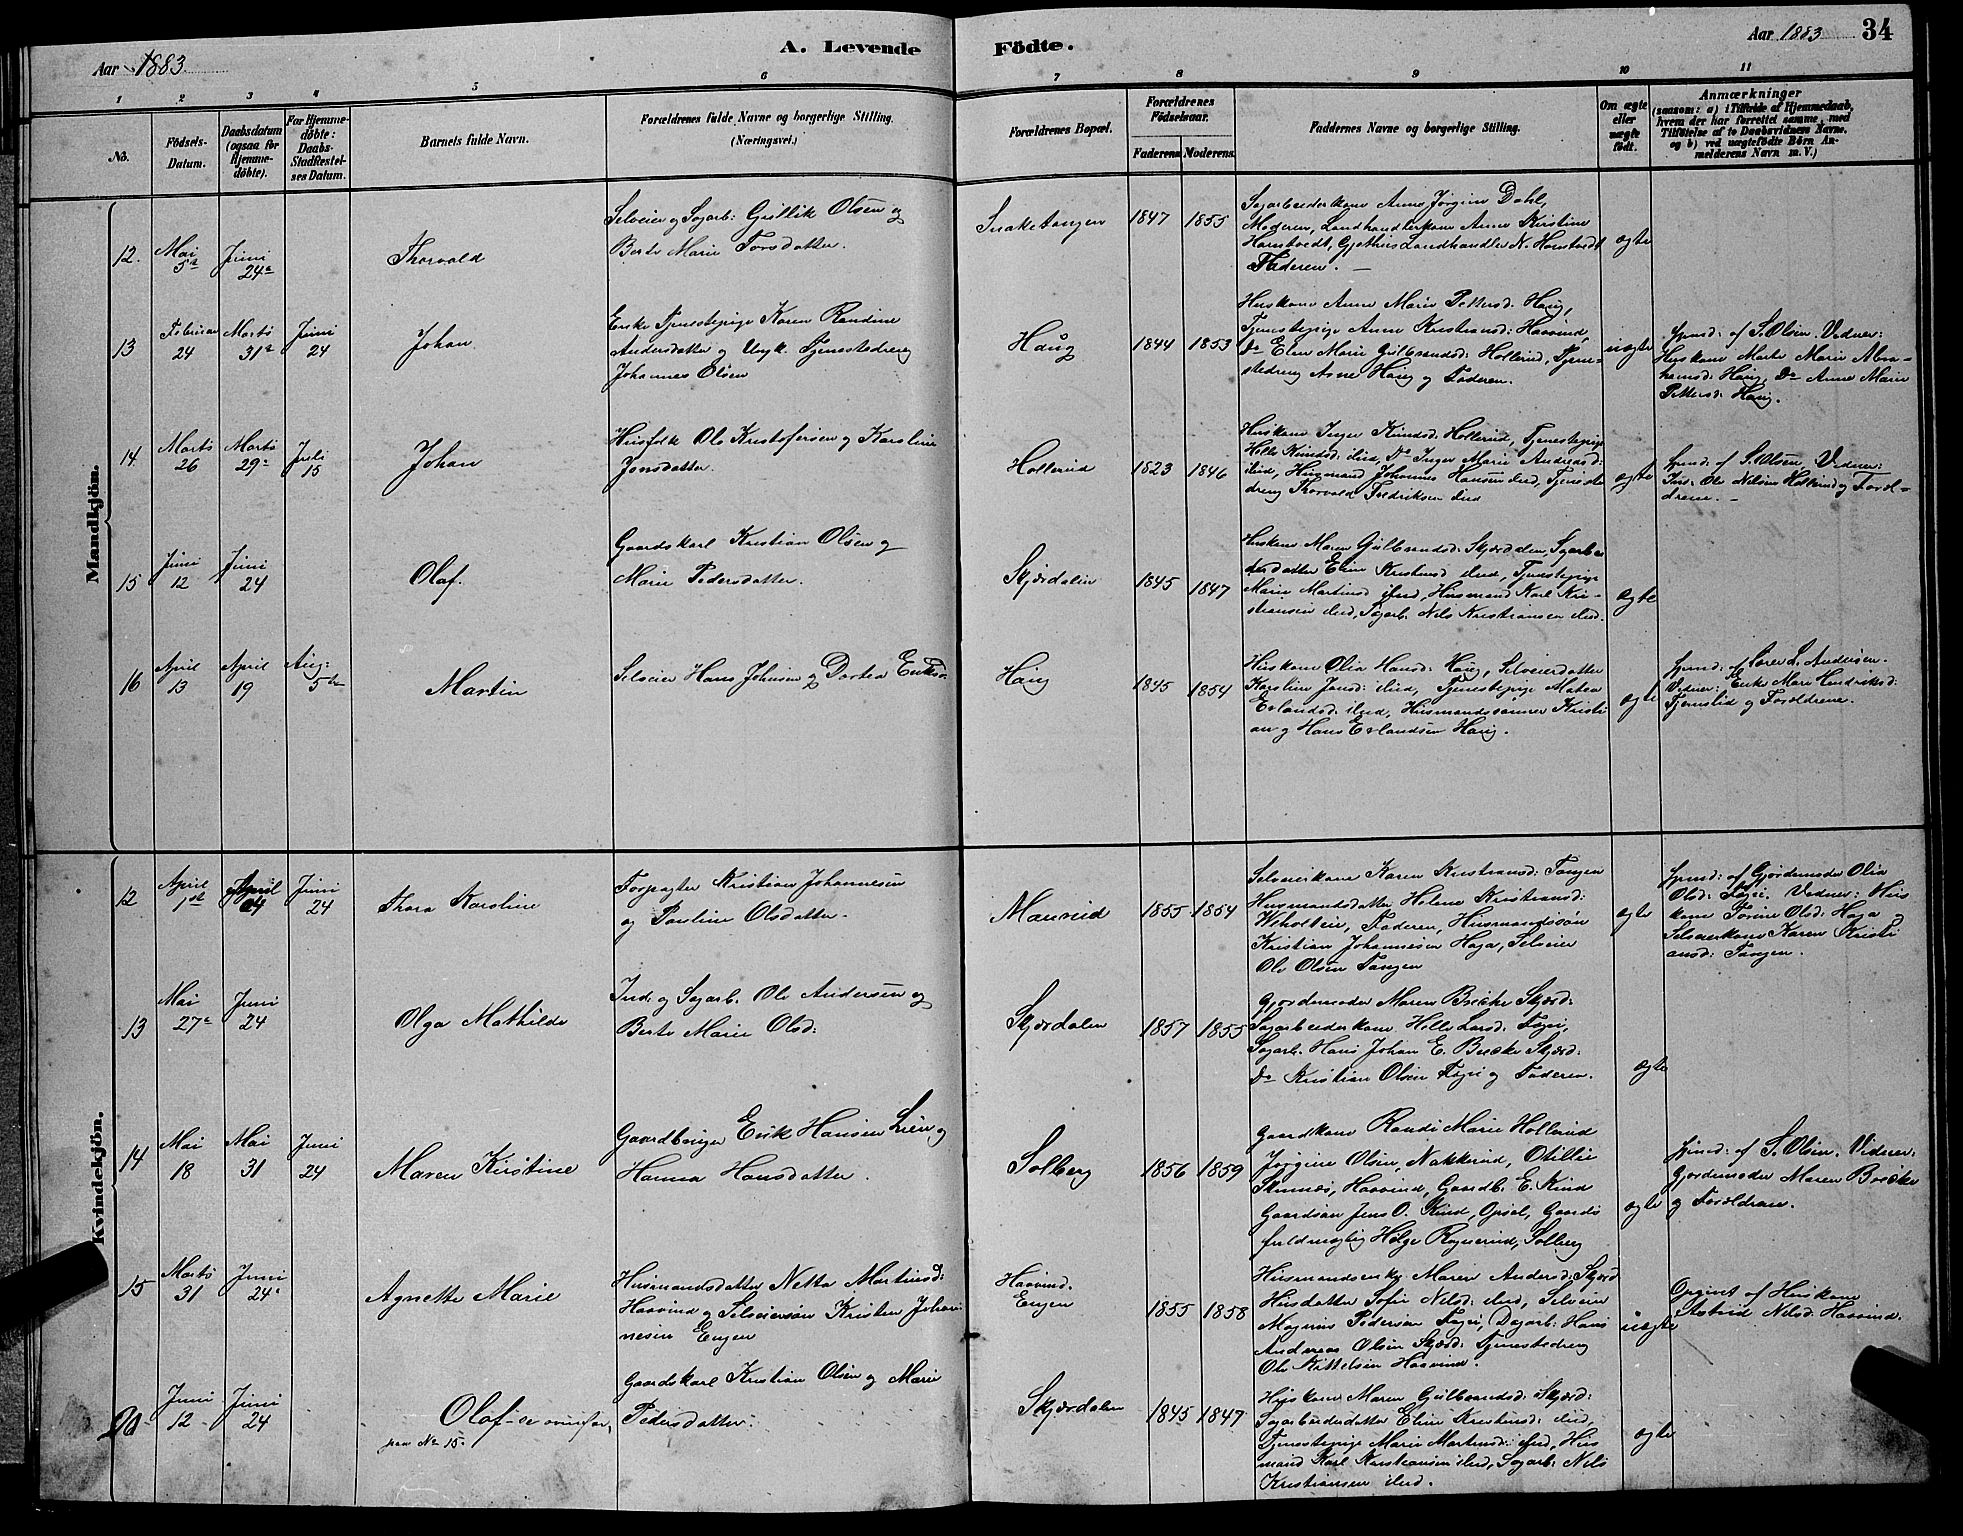 A. Levende
Födte.
Aar 1883
Aar 1883
34
1
2
3
4
5
6
7
8
9
10
11
No.
Födsels-
Datum.
Daabsdatum
(ogsaa for
Hjemme-
döbte).
For Hjemme-
döbte:
Daabs-
Stadfæstel-
ses Datum.
Barnets fulde Navn.
Forældrenes fulde Navne og borgerlige Stilling.
(Næringsvei.)
Forældrenes Bopæl.
Forældrenes
Födselsaar.
Faderens
Moderens
Faddernes Navne og borgerlige Stilling.
Om ægte
eller
uægte
födt.
Anmærkninger
(saasom: a) i Tilfælde af Hjemmedaab,
hvem der har forrettet samme, med
Tilföielse af to Daabsvidners Navne.
og b) ved uægtefödte Börn An-
melderens Navn m. V.)
Mandkjön.
12.
Mai
5te
Juni
24e
Thorvald
Selveier og Sagarb: Gullik Olsen og
Berte Marie Torsdatter.
Snaketangen
1847
1855
Sagarbeiderkone Anne Jörgine Dahl,
Moderen, Landhandlerkone Anne Kirstine
Hamtvedt, Gjæthus Landhandler N. Hamtvedt
Faderen. —
ægte
13
Februar
24
Marts
31te
Juni
24
Johan
Enke Tjenestepige Karen Randine
Andersdatter og Ungk. Tjenestedreng
Johannes Olsen
Haug
1844
1853
Huskone Anne Marie Pettersd: Haug,
Tjenestepige Anne Kristiansd: Haavind,
Do Elen Marie Gulbrandsd: Hollerud, Tjene-
stedreng Arne Haug og Faderen.
uægte
hjmd: af S. Olsen. Vidner:
Huskone Marte Marie Abra-
hamsd: Haug, Do Anne Marie
Pettersd: Haug.
14
Marts
26
Marts
29e
Juli
15
Johan
Husfolk Ole Kristofersen og Karoline
Jonsdatter.
Hollerud
1823
1846
Huskone Inger Knudsd: Hollerud, Tjenestepige
Helle Knudsd: ibid, Do Inger Marie Andreasd:
ibid, Husmand Johannes Hansen ibid, Tjeneste
dreng Thorvald Fredriksen ibid
ægte
hjmd: af S. Olsen, Vidner:
Ind: Ole Nilsen Hollerud og Foræl-
drene. —
15
Juni
12
Juni
24
Olaf.
Gaardskarl Kristian Olsen og
Marie Pedersdatter.
Skjærdalen
1845
1847
Huskone Maren Gulbrandsd: Skjærdalen, Sagarbei
derdatter Eline Kristiansd ibid, Tjenestepige
Marie Martinsd ibid, Husmand Karl Kri-
stiansen ibid, Sagarb. Nils Kristiansen ibid.
ægte
16
April
13
April
19
Aug:
5te
Martin
Selveier Hans Johnsen og Dortea Eriksd
Haug
1845
1854
Huskone Olia Hansd: Haug, Selveierdatter
Karoline Jonsd: ibid, Tjenestepige Matea
Erlandsd: ibid, Husmandssönner Kristi
an og Hans Erlandsen Haug.
ægte
hjmd: af Lærer L. Andersen.
Vidner: Enke Mari Hendriksd:
Tjernslid og Forældrene.
Kvindekjön.
12
April
1st
April
24
Juni
24
Thora Karoline
Forpagter Kristian Johannesen
og Pauline Olsdatter.
Maurud
1855
1854
Selveierkone Karen Kristiansd: Tangen
Husmandsdatter Helene Kristiansd:
Faderen, Husmandssön
Kristian Johannesen Haga, Selveier
Ole Olsen Tangen
ægte
hjmd: af Gjordemoder Olia
Olsd: Fægri. Vidner: Hus
kone Torine Olsd: Haga og
Selveierkone Karen Kristi
ansd: Tangen.
13
Mai
27e
Juni
24
Olga Mathilde
Ind: og Sagarb. Ole Andersen og
Berte Marie Olsd:
Skjærdalen
1857
1855
Gjordemoder Maren Bække Skjærd:
Sagarbeiderkone Helle Larsd: Fægri,
Sagarb. Hans Johan E. Bække Skjærd:
Do Kristian Olsen Fægri og Faderen.
ægte
14
Mai
18
Mai
31
Juni
24
Maren Kirstine
Gaardbruger Erik Hansen Lien og
Hanna Hansdatter.
Solberg
1856
1859
Gaardkone Randi Marie Hollerud
Jörgine Olsen, Nakkerud, Otillie
Skinnæs, Haavind, Gaardb. E. Kind
Gaardsön Jens O. Kind, Opsal, Gaards
fuldmægtig Helge Rognerud, Solberg
ægte
hjmd: af S. Olsen. Vidner:
Gjordemoder Maren Bække
og Forældrene.
15
Marts
31
Juni
24e
Agnette Marie
Husmandsdatter Netta Martinsd:
Haavind og Selveiersön Kristen Johan-
nesen Engen
Haavind.
Engen
1855
1858
Husmandsenke Maren Andersd: Skjærd
Husdatter Sofie Nilsd: ibid, Selveier
Magnus Pedersen Fægri, Dagarb: Hans
Andreas Olsen Skjærd: Tjenestedreng
Ole Kittelsen Haavind.
uægte
Opgivet af Huskone
Astrid Nilsd: Haavind.
Juni
12
Juni
24
Olaf – se ovenfor,
paa No 15.
Gaardskarl Kristian Olsen og Marie
Pedersdatter.
Skjærdalen
1845
1847
Huskone Maren Gulbrandsd: Skjærd:
Sagarbeiderdatter Eline Kristiansd: ibid,
Tjenestepige Marie Martinsd: ibid, Hus
mand Karl Kristiansen ibid, Sagarb: Nils
Kristiansen ibid.
ægte